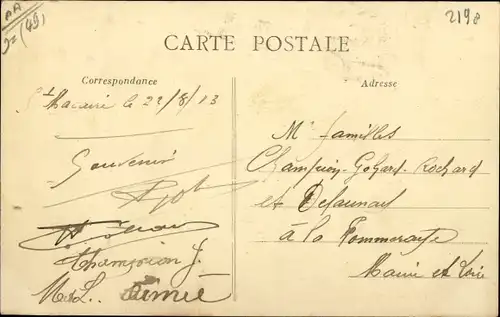 (49)
2198
CARTE POSTALE
Correspondance
Adresse
St Macaire le 22/8/13
Souvenir
Champion J.
M&L. Aimé
Mrs familles
Champion-Gohard-Rochard
et Delaunay
à la Pommeraye
Maine et Loire